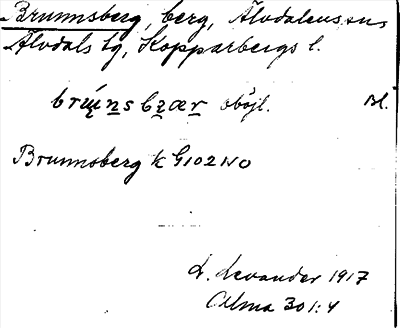 Brunnsberg, berg, Älvdalens sn,
Älvdals tg, Kopparbergs l.
oböjl. Bl.
Brunnsberg k G102NO
L. Levander 1917
Alma 301:4